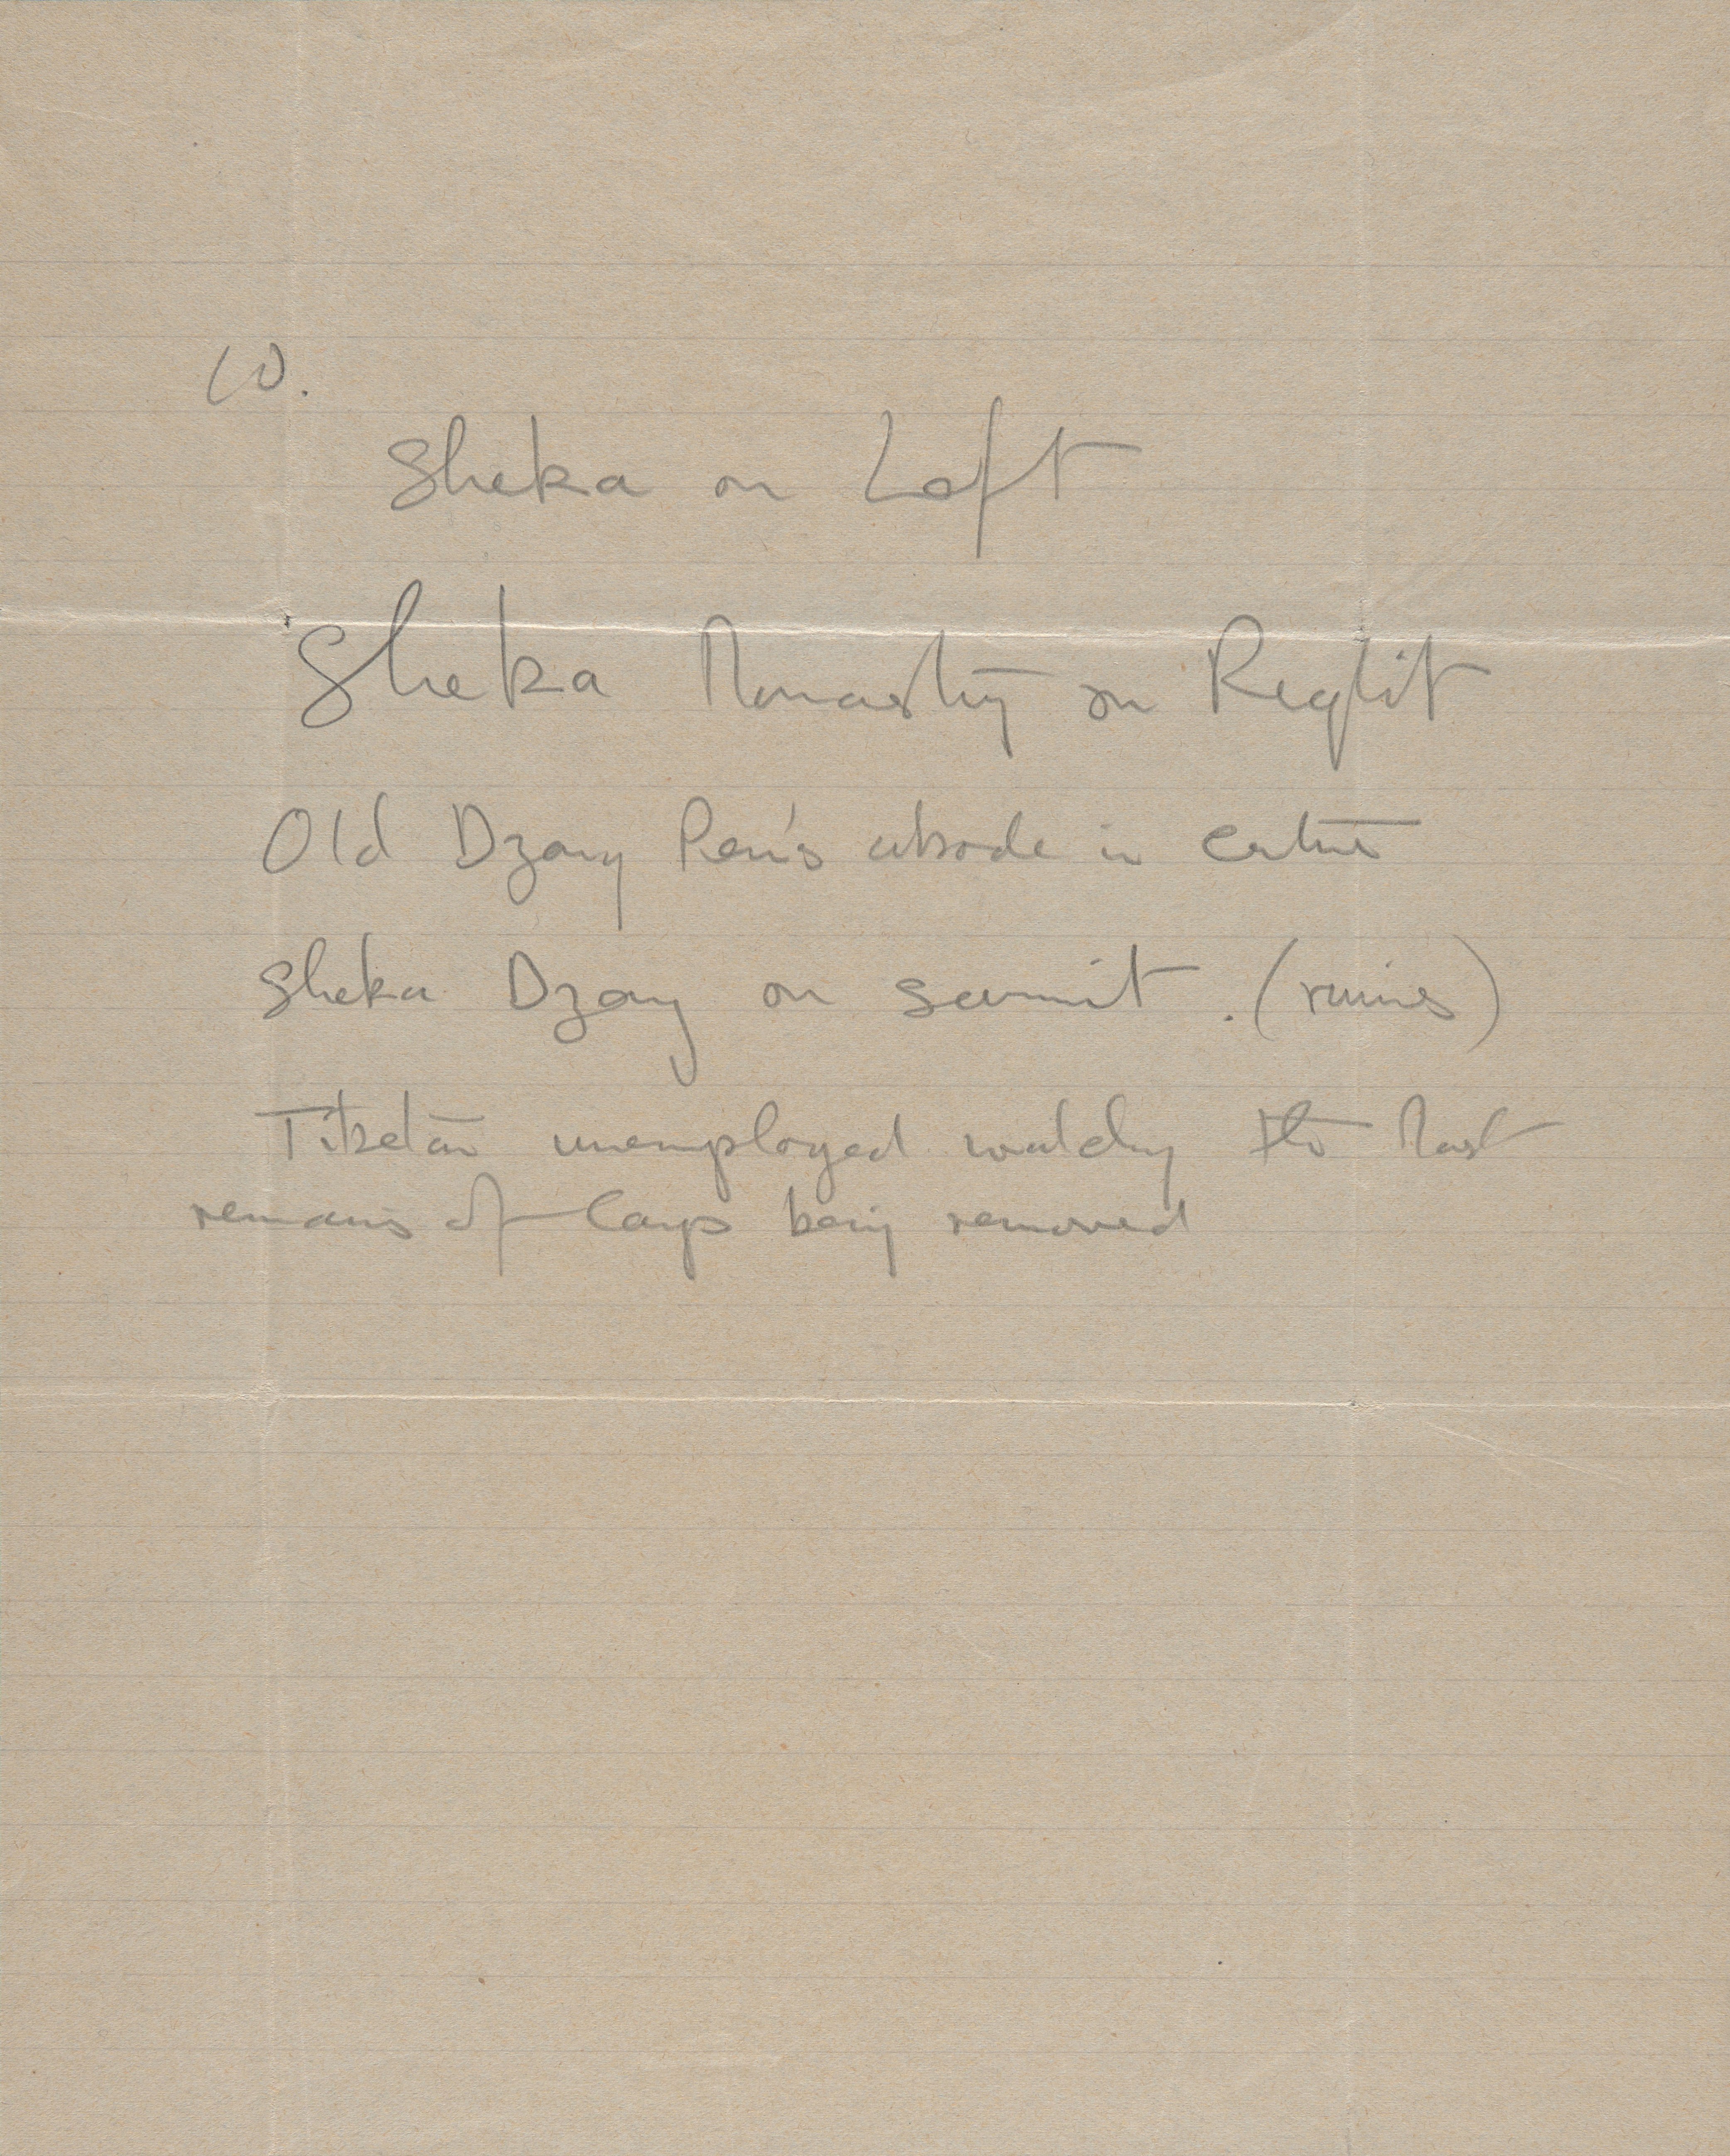 10.
Sheka on Left
Sheka Monastry on Reglit
Old Dzong Pen's abode in centre
Sheka Dzong on summit. (ruins)
Tibetan unemployed watching the last
remains of Camp being removed